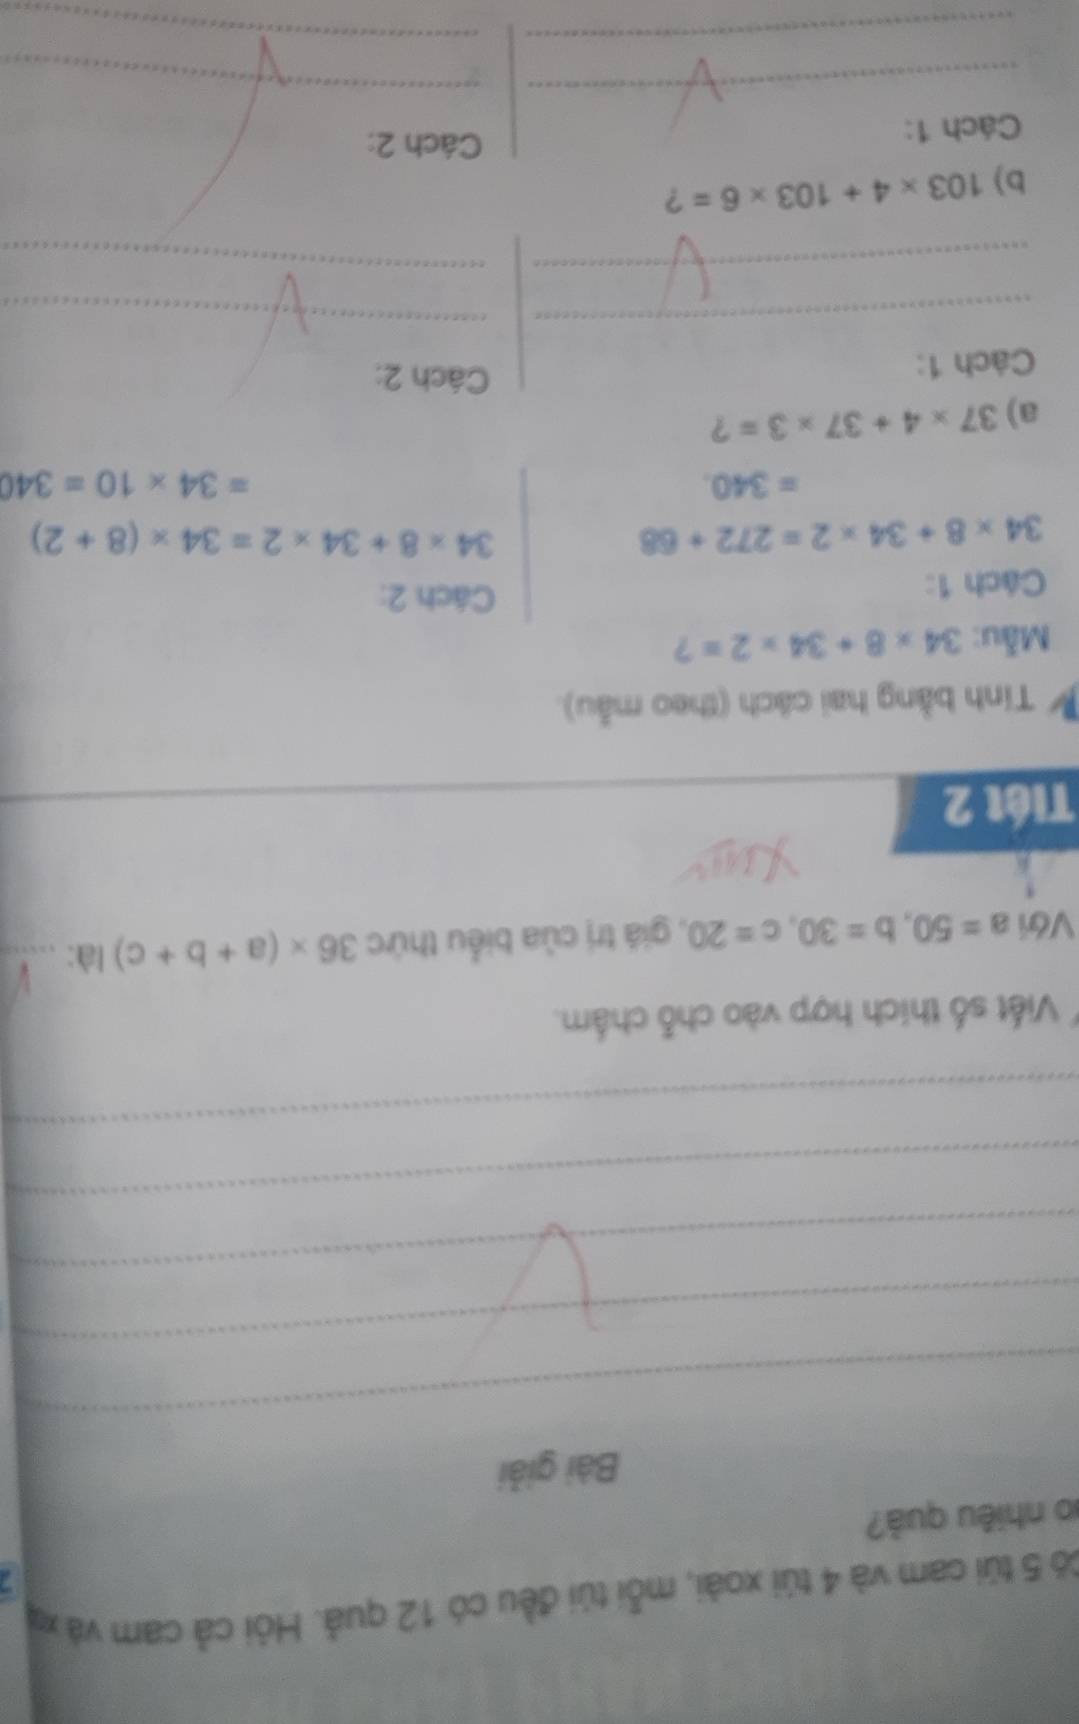 Có 5 túi cam và 4 túi xoài, mỗi túi đều có 12 quả. Hỏi cả cam và
nhiêu quả?
Bài giải
Viết số thích hợp vào chỗ chấm.
Với a = 50, b = 30, c = 20, giá trị của biểu thức 36 × (a + b + c) là: ......
Tiết 2
Tính bằng hai cách (theo mẫu).
Mẫu: 34 × 8 + 34 × 2 = ?
Cách 1:
34 × 8 + 34 × 2 = 272 + 68
= 340.
Cách 2:
34 × 8 + 34 × 2 = 34 × (8 + 2)
= 34 × 10 = 340
a) 37 × 4 + 37 × 3 = ?
Cách 1:
Cách 2:
b) 103 × 4 + 103 × 6 = ?
Cách 1:
Cách 2: